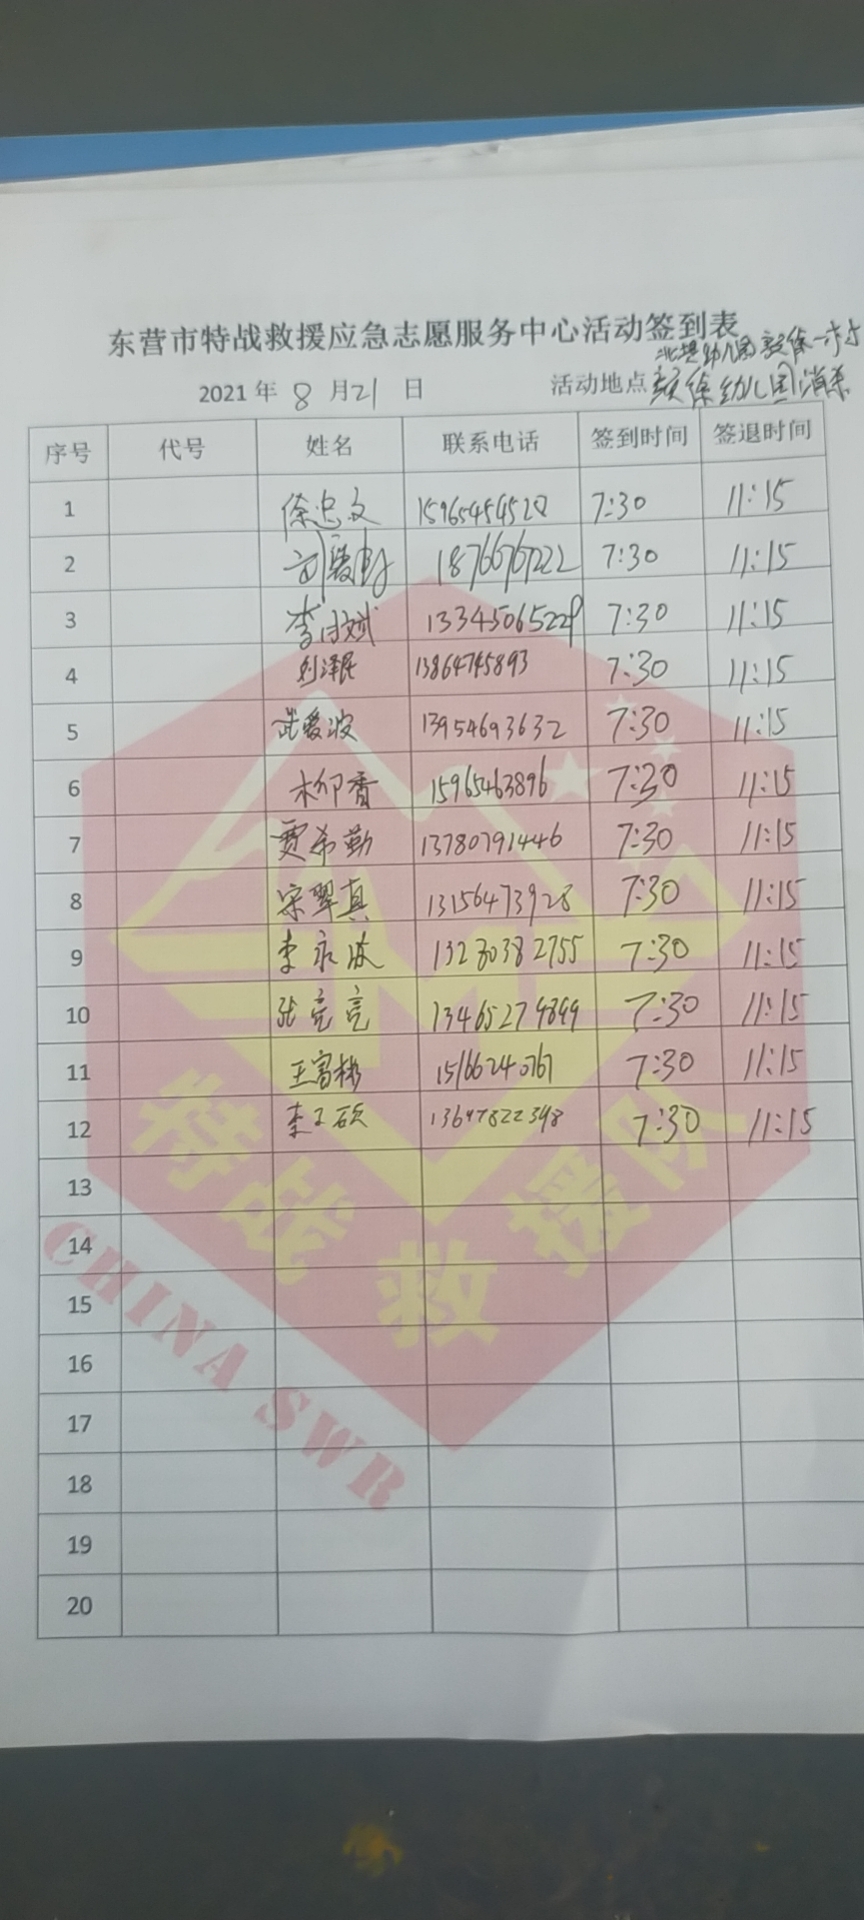 东营市特战救援应急志愿服务中心活动签到表
2021年 8 月 21 日 活动地点 幼儿园消杀
序号 代号 姓名 联系电话 签到时间 签退时间
1 徐忠文 15965454520 7:30 11:15
2 18766767222 7:30 11:15
3 13345065229 7:30 11:15
4 刘泽民 13864745893 7:30 11:15
5 武爱波 13954693632 7:30 11:15
6 柳香 15965463896 7:30 11:15
7 贾希勤 13780791446 7:30 11:15
8 宋翠真 13156473928 7:30 11:15
9 李永波 13280382755 7:30 11:15
10 张亮亮 13465279899 7:30 11:15
11 王富彬 15166240767 7:30 11:15
12 李子硕 13647822398 7:30 11:15
13
14
15
16
17
18
19
20
特战救援队
CHINA SWR